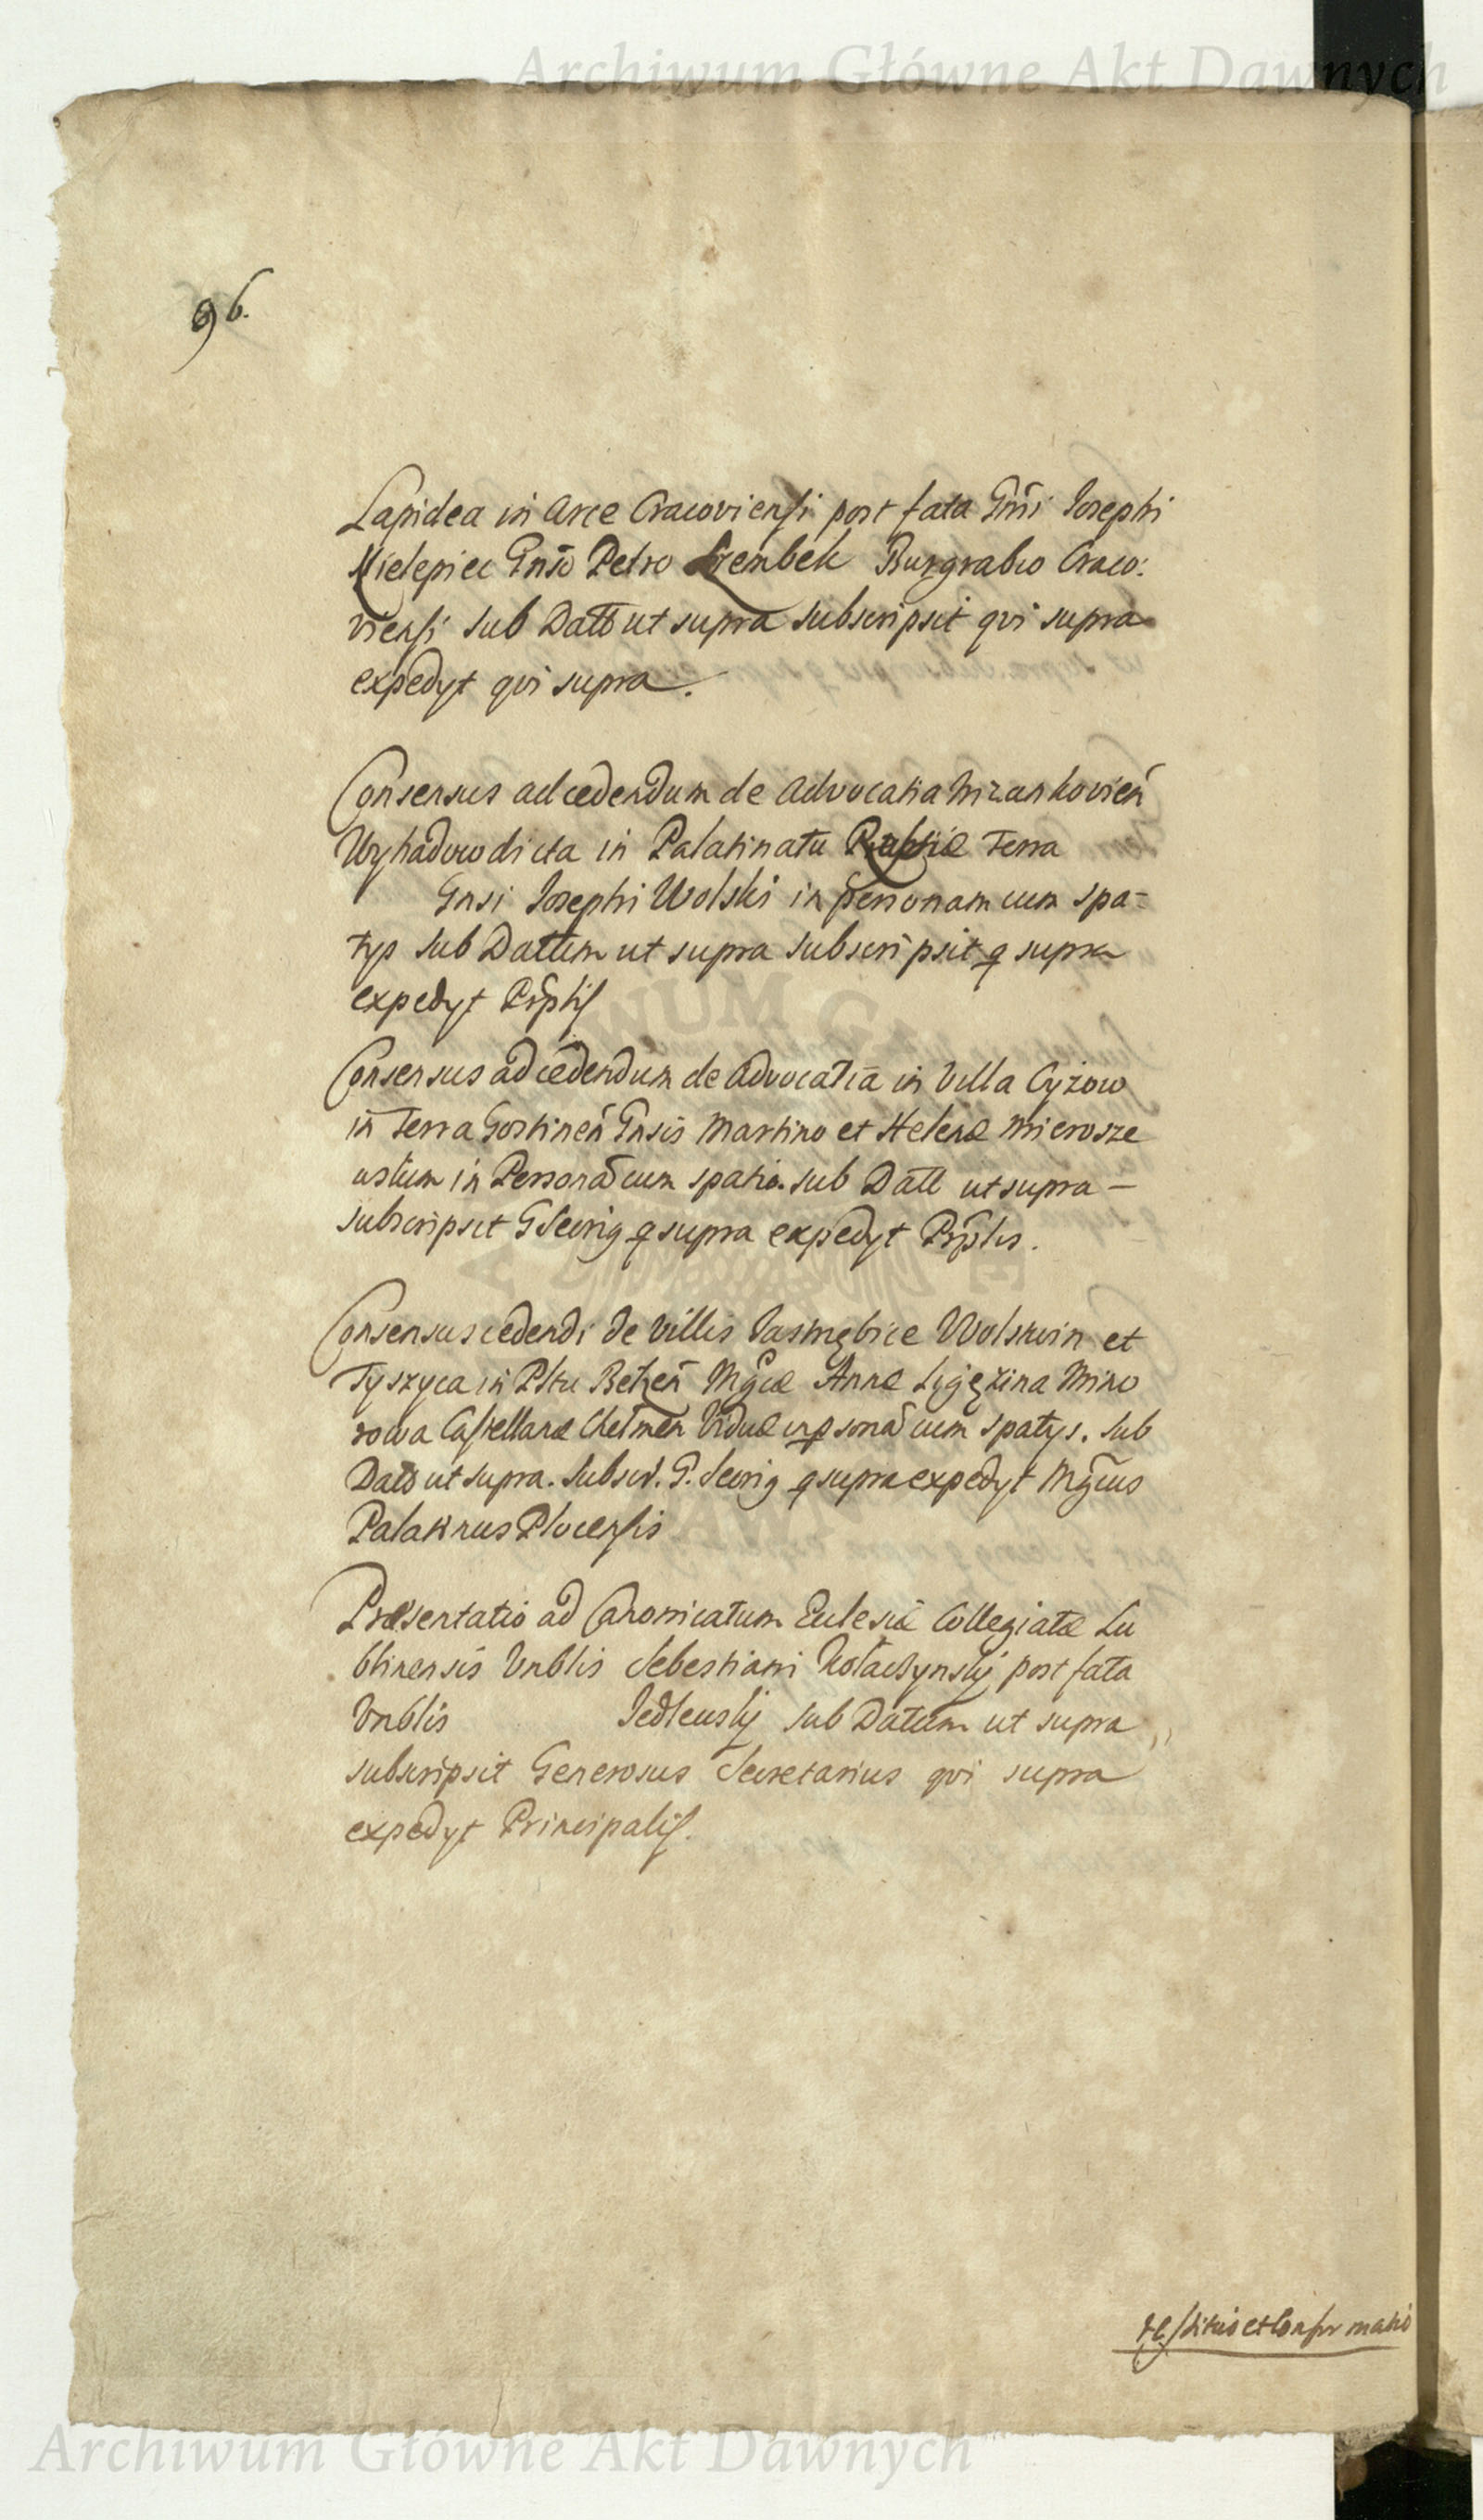 Archiwum Główne Akt Dawnych
96.
Lapidea in Arce Cracoviensi post fata Gnsi Josephi
Kielepiec Gnso Petro Szembek Burgrabio Craco:
viensi sub Datto ut supra subscripsit qvi supra
expedyt qvi supra.
Consensus ad cedendum de Advocatia Mrzankovień
Wyhadow dicta in Palatinatu Terra
Gnsi Josephi Wolski in personam cum spa-
tys sub Dattum ut supra subscripsit q supra
expedyt Prplis
Consensus ad cedendum de Advocatia in Villa Cyżow
in Terra Gostineń Gnsis Martino et Helenæ Mierosze
in Personã cum spatio. sub Datt ut supra –
subscripsit G Secrig q supra expedyt Prplis.
Consensus cedendi de Villis Jastrzębice Wolswin et
Tyszyca in Pltu Bełzeń Mgcæ Annæ Ligęzina Mino
rowa Castellanæ Chełmeń Viduæ in psonã cum spatys. sub
Dato ut supra. subscr. G. Secrig q supra expedyt Mgcus
Palatinus Plocensis
Præsentatio ad Canonicatum Eclesiæ Collegiatæ Lu
blinensis Vnblis Sebestiani Kołaczynskj post fata
Vnblis Jedleuskj sub Datum ut supra
subscripsit Generosus Secretarius qvi supra
expedyt Principalis.
restitutio et Confirmatio
Archiwum Główne Akt Dawnych